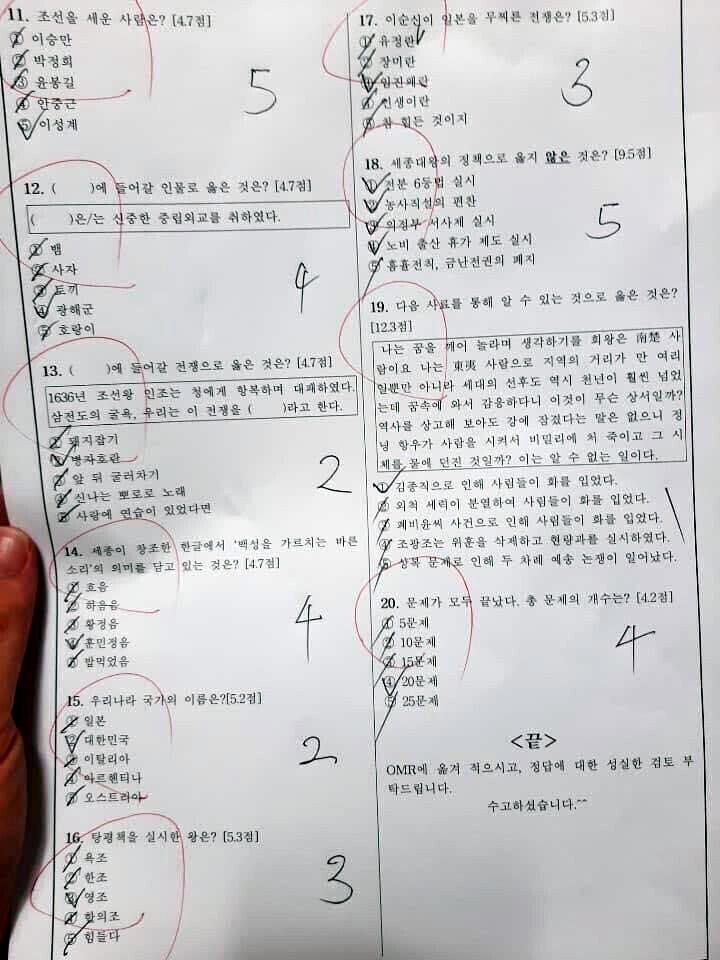 11. 조선을 세운 사람은? [4.7점]
① 이승만
② 박정희
③ 윤봉길
④ 안중근
⑤ 이성계
5
12. (    )에 들어갈 인물로 옳은 것은? [4.7점]
(    )은/는 신중한 중립외교를 취하였다.
① 뱀
② 사자
③ 토끼
④ 광해군
⑤ 호랑이
4
13. (    )에 들어갈 전쟁으로 옳은 것은? [4.7점]
1636년 조선왕 인조는 청에게 항복하며 대패하였다.
삼전도의 굴욕, 우리는 이 전쟁을 (    )라고 한다.
① 돼지잡기
② 병자호란
③ 앞 뒤 굴러차기
④ 신나는 뽀로로 노래
⑤ 사랑에 연습이 있었다면
2
14. 세종이 창조한 한글에서 '백성을 가르치는 바른
소리'의 의미를 담고 있는 것은? [4.7점]
① 흐음
② 하음음
③ 황정음
④ 훈민정음
⑤ 밥먹었음
4
15. 우리나라 국가의 이름은?[5.2점]
① 일본
② 대한민국
③ 이탈리아
④ 아르헨티나
⑤ 오스트리아
2
16. 탕평책을 실시한 왕은? [5.3점]
① 욕조
② 한조
③ 영조
④ 합의조
⑤ 힘들다
3
17. 이순신이 일본을 무찌른 전쟁은? [5.3점]
① 유정란
② 장미란
③ 임진왜란
④ 인생이란
⑤ 참 힘든 것이지
3
18. 세종대왕의 정책으로 옳지 않은 것은? [9.5점]
① 전분 6등법 실시
② 농사직설의 편찬
③ 의정부 서사제 실시
④ 노비 출산 휴가 제도 실시
⑤ 흠휼전칙, 금난전권의 폐지
5
19. 다음 사료를 통해 알 수 있는 것으로 옳은 것은?
[12.3점]
나는 꿈을 깨어 놀라며 생각하기를 회왕은 南楚 사
람이요 나는 東夷 사람으로 지역의 거리가 만 여리
일뿐만 아니라 세대의 선후도 역시 천년이 훨씬 넘었
는데 꿈속에 와서 감응하다니 이것이 무슨 상서일까?
역사를 상고해 보아도 강에 잠겼다는 말은 없으니 정
녕 항우가 사람을 시켜서 비밀리에 쳐 죽이고 그 시
체를 물에 던진 것일까? 이는 알 수 없는 일이다.
① 김종직으로 인해 사림들이 화를 입었다.
② 외척 세력이 분열하여 사림들이 화를 입었다.
③ 폐비윤씨 사건으로 인해 사림들이 화를 입었다.
④ 조광조는 위훈을 삭제하고 현량과를 실시하였다.
⑤ 상복 문제로 인해 두 차례 예송 논쟁이 일어났다.
1
20. 문제가 모두 끝났다. 총 문제의 개수는? [4.2점]
① 5문제
② 10문제
③ 15문제
④ 20문제
⑤ 25문제
4
<끝>
OMR에 옮겨 적으시고, 정답에 대한 성실한 검토 부
탁드립니다.
수고하셨습니다.^^